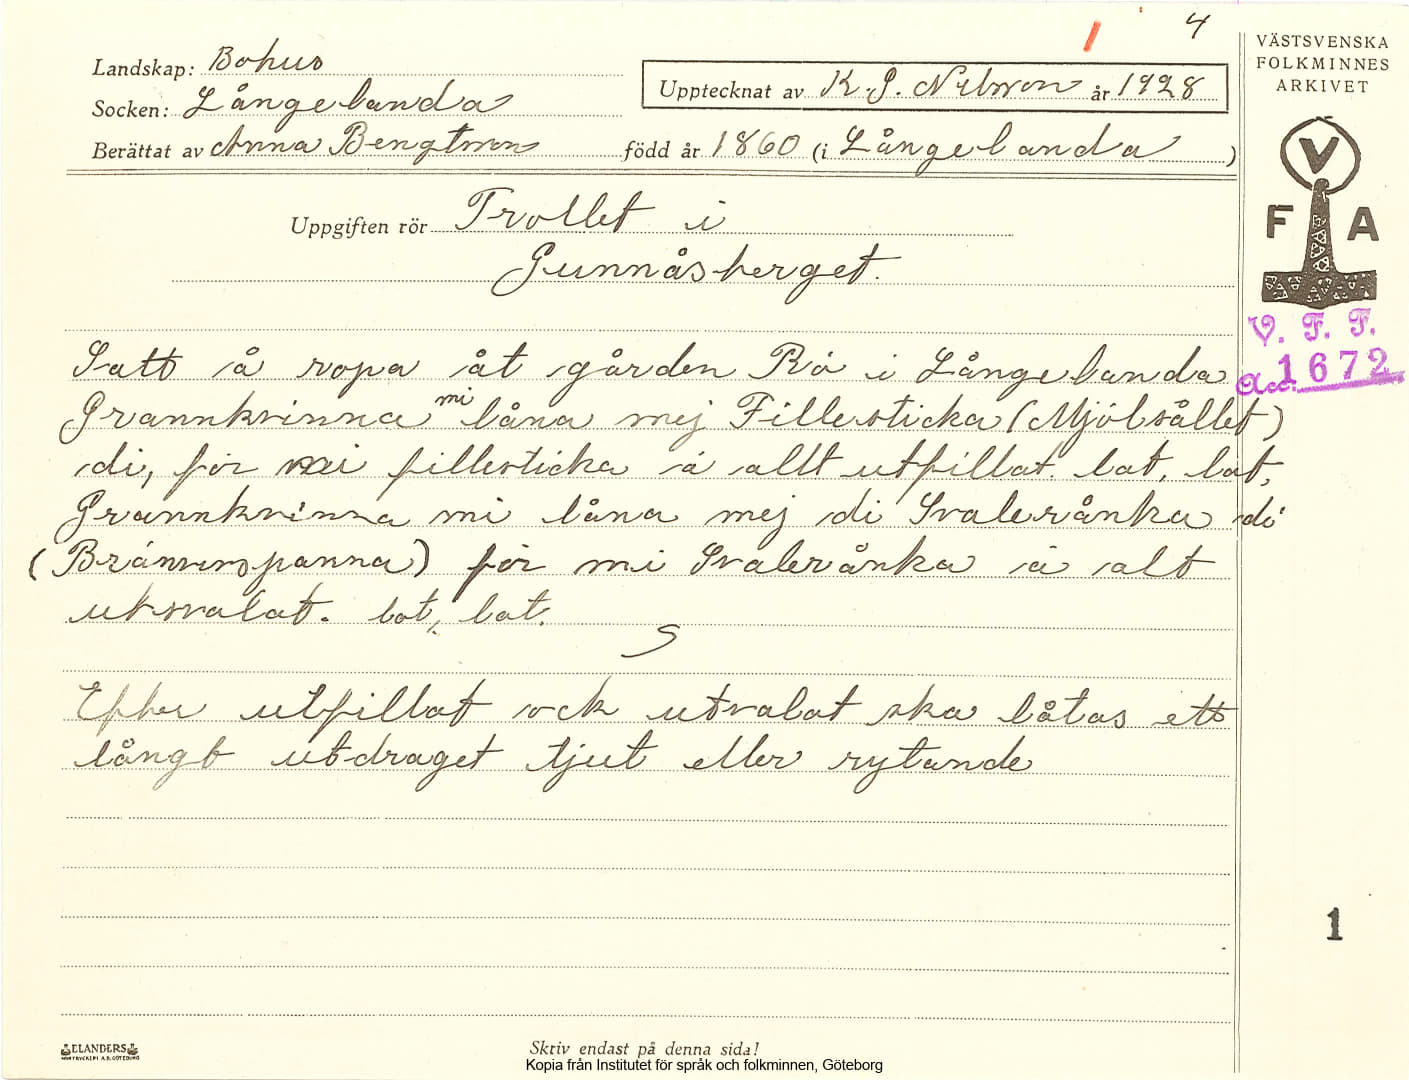 4
VÄSTSVENSKA
FOLKMINNES
ARKIVET
Landskap: Bohus
Upptecknat av K. J. Nilsson år 1928
Socken: Långelanda
Berättat av Anna Bengtsson född år 1860 (i Långelanda)
V
F A
Uppgiften rör Trollet i
Gunnåsberget.
V. F. F.
Acc. 1672
Satt å ropa åt gården Rö i Långelanda
Grannkvinna mi låna mej Fillesticka (Mjölsållet)
di, för mi fillesticka ä allt utfillat. lat, lat,
Grannkvinna mi låna mej di Svaleränka di
(Bränvinspanna) för mi Svaleränka ä alt
utsvalat. lat, lat.
Efter utfillat ock utsvalat ska låtas ett
långt utdraget tjut eller rytande
1
ELANDERS
Skriv endast på denna sida!
Kopia från Institutet för språk och folkminnen, Göteborg